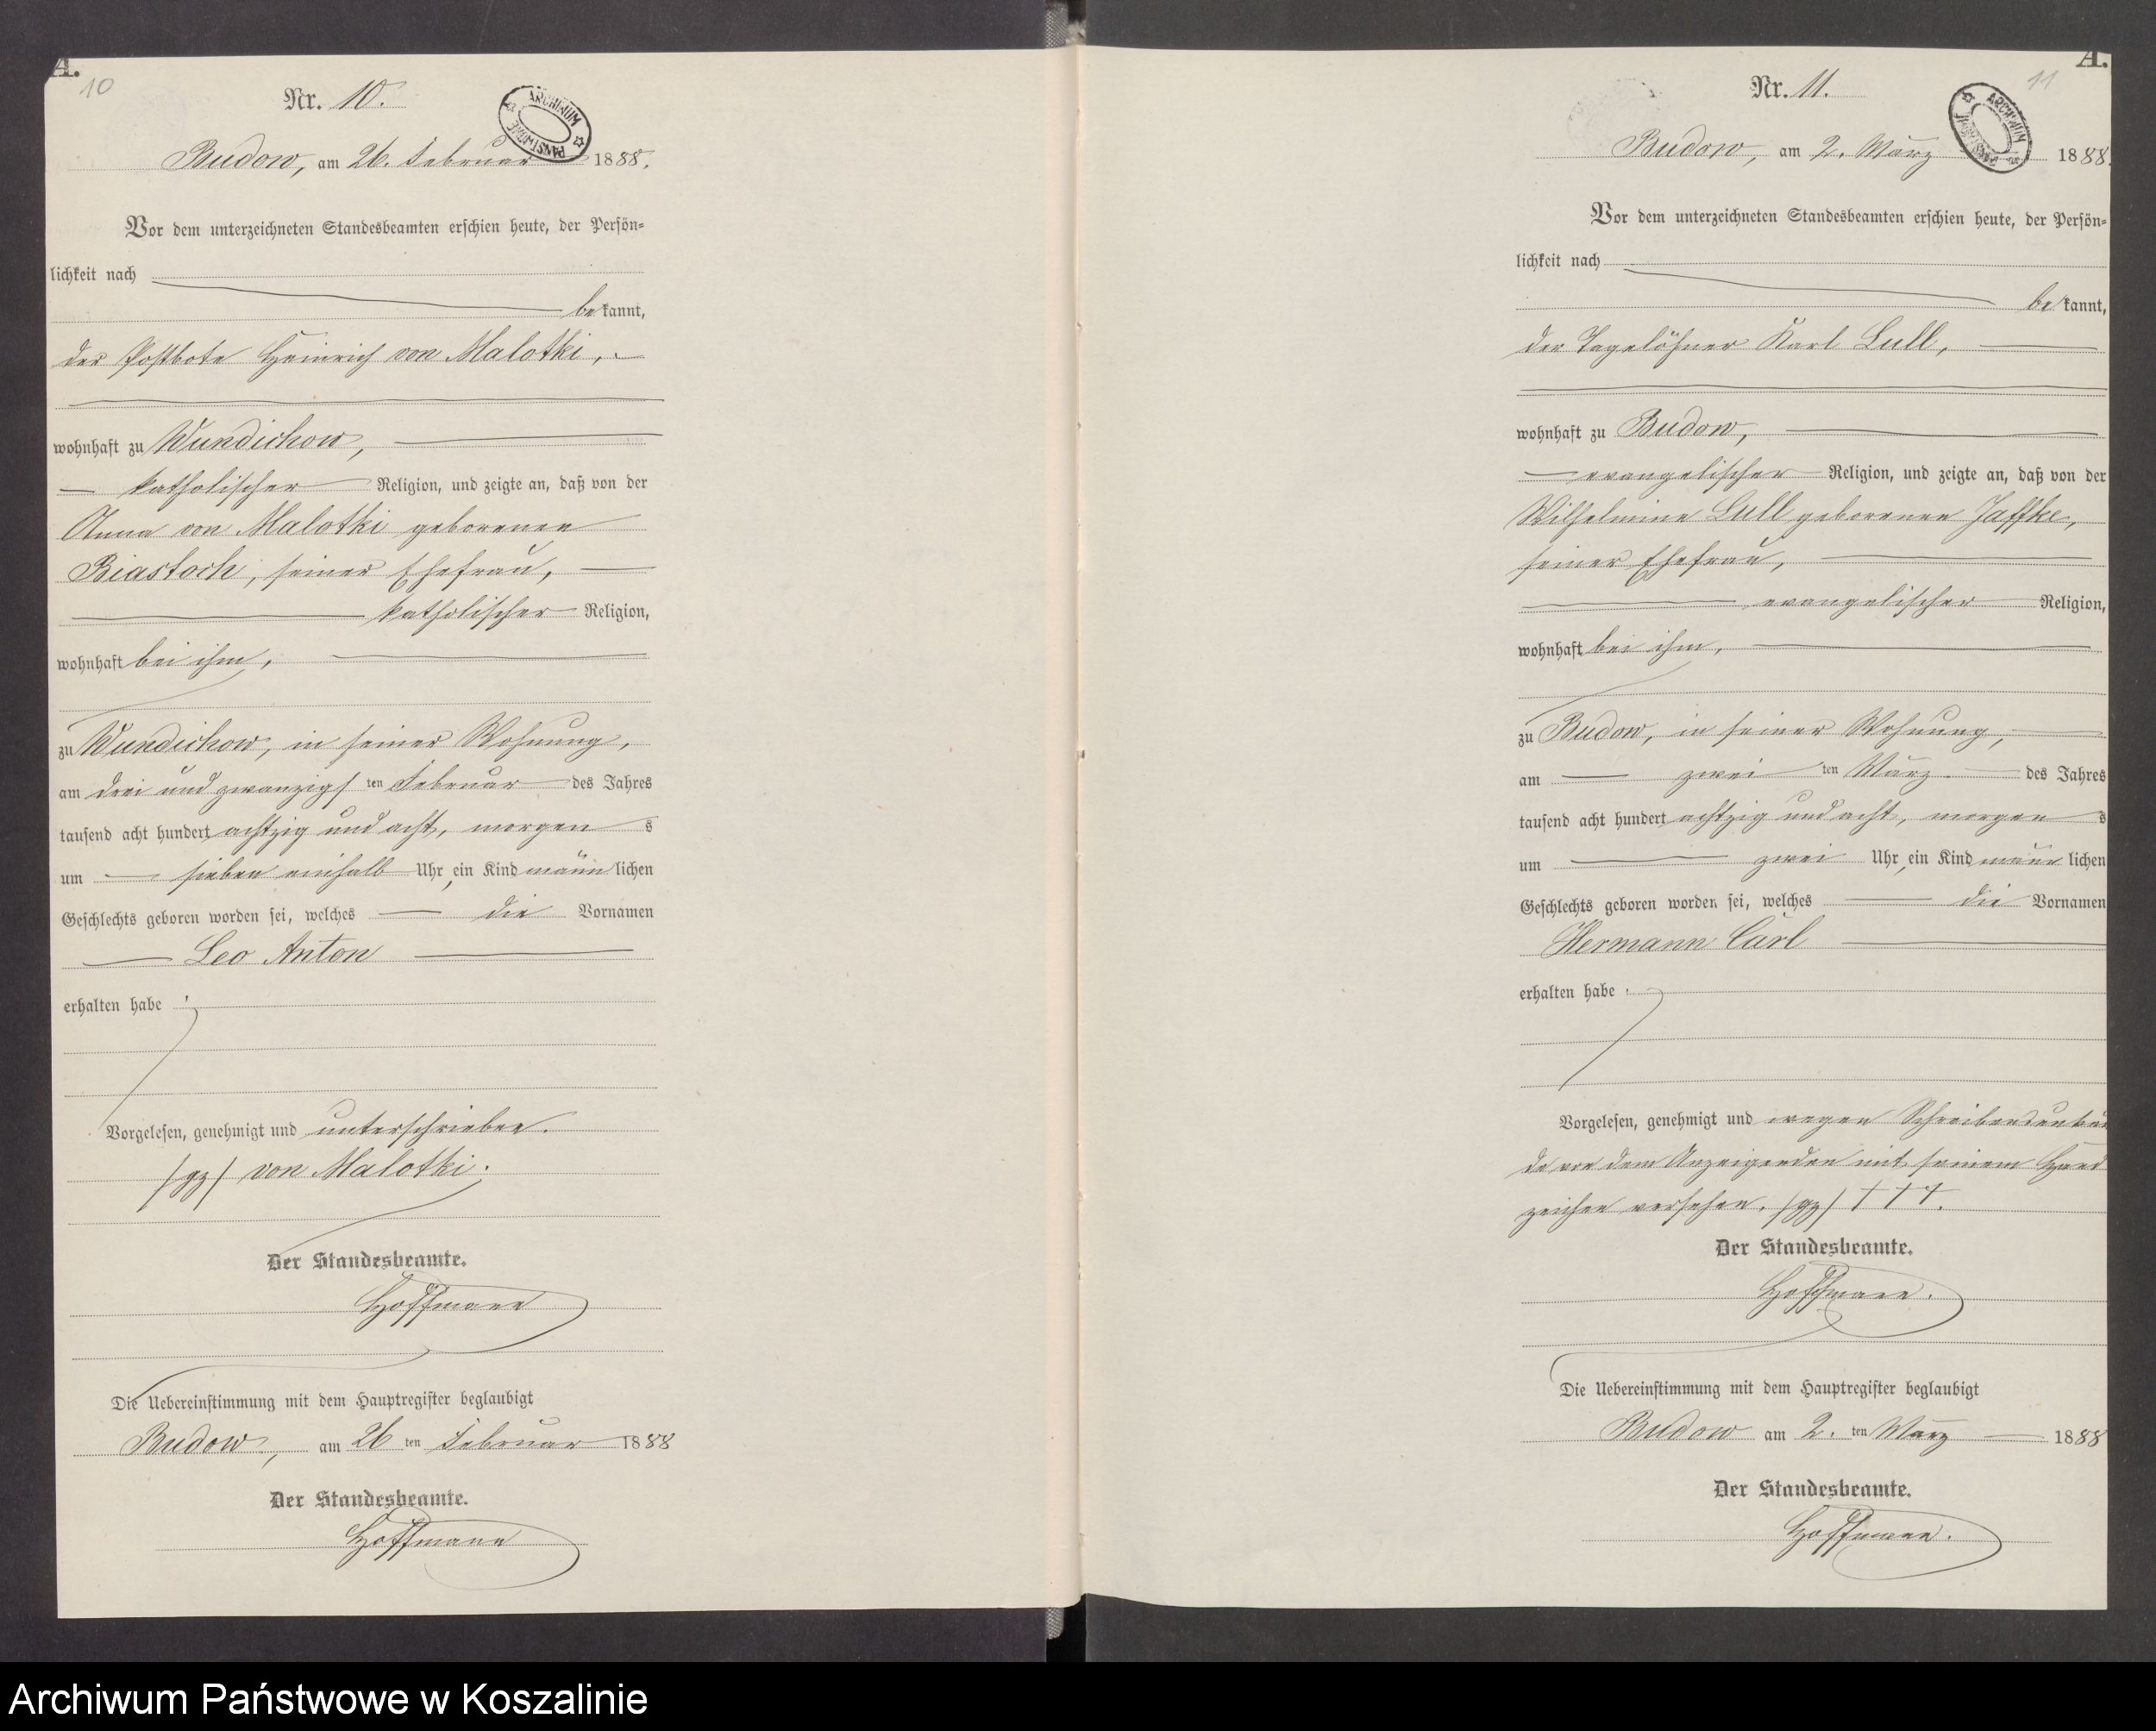 A.
10
Nr. 10.
ARCHIWUM PAŃSTWOWE
Budow, am 26. Februar 1888.
Vor dem unterzeichneten Standesbeamten erschien heute, der Persön-
lichkeit nach
bekannt,
der Postbote Heinrich von Malotki,
wohnhaft zu Wundichow,
katholischer Religion, und zeigte an, daß von der
Anna von Malotki geborenen
Biastoch, seiner Ehefrau,
katholischer Religion,
wohnhaft bei ihm,
zu Wundichow, in seiner Wohnung,
am drei und zwanzigsten Februar des Jahres
tausend acht hundert achtzig und acht, morgens
um sieben einhalb Uhr, ein Kind männlichen
Geschlechts geboren worden sei, welches die Vornamen
Leo Anton
erhalten habe.
Vorgelesen, genehmigt und unterschrieben.
/gz/ von Malotki.
Der Standesbeamte.
Hoffmann
Die Uebereinstimmung mit dem Hauptregister beglaubigt
Budow, am 26 ten Februar 1888
Der Standesbeamte.
Hoffmann
A.
11
Nr. 11.
ARCHIWUM PAŃSTWOWE
Budow, am 2. März 1888.
Vor dem unterzeichneten Standesbeamten erschien heute, der Persön-
lichkeit nach
bekannt,
der Tagelöhner Karl Lull,
wohnhaft zu Budow,
evangelischer Religion, und zeigte an, daß von der
Wilhelmine Lull geborenen Jaffke,
seiner Ehefrau,
evangelischer Religion,
wohnhaft bei ihm,
zu Budow, in seiner Wohnung,
am zweiten März des Jahres
tausend acht hundert achtzig und acht, morgens
um zwei Uhr, ein Kind männlichen
Geschlechts geboren worden sei, welches die Vornamen
Hermann Carl
erhalten habe.
Vorgelesen, genehmigt und wegen Schreibensunkun
de von dem Anzeigenden mit seinem Hand
zeichen versehen. /gz/ † † †.
Der Standesbeamte.
Hoffmann.
Die Uebereinstimmung mit dem Hauptregister beglaubigt
Budow am 2. ten März 1888
Der Standesbeamte.
Hoffmann.
Archiwum Państwowe w Koszalinie